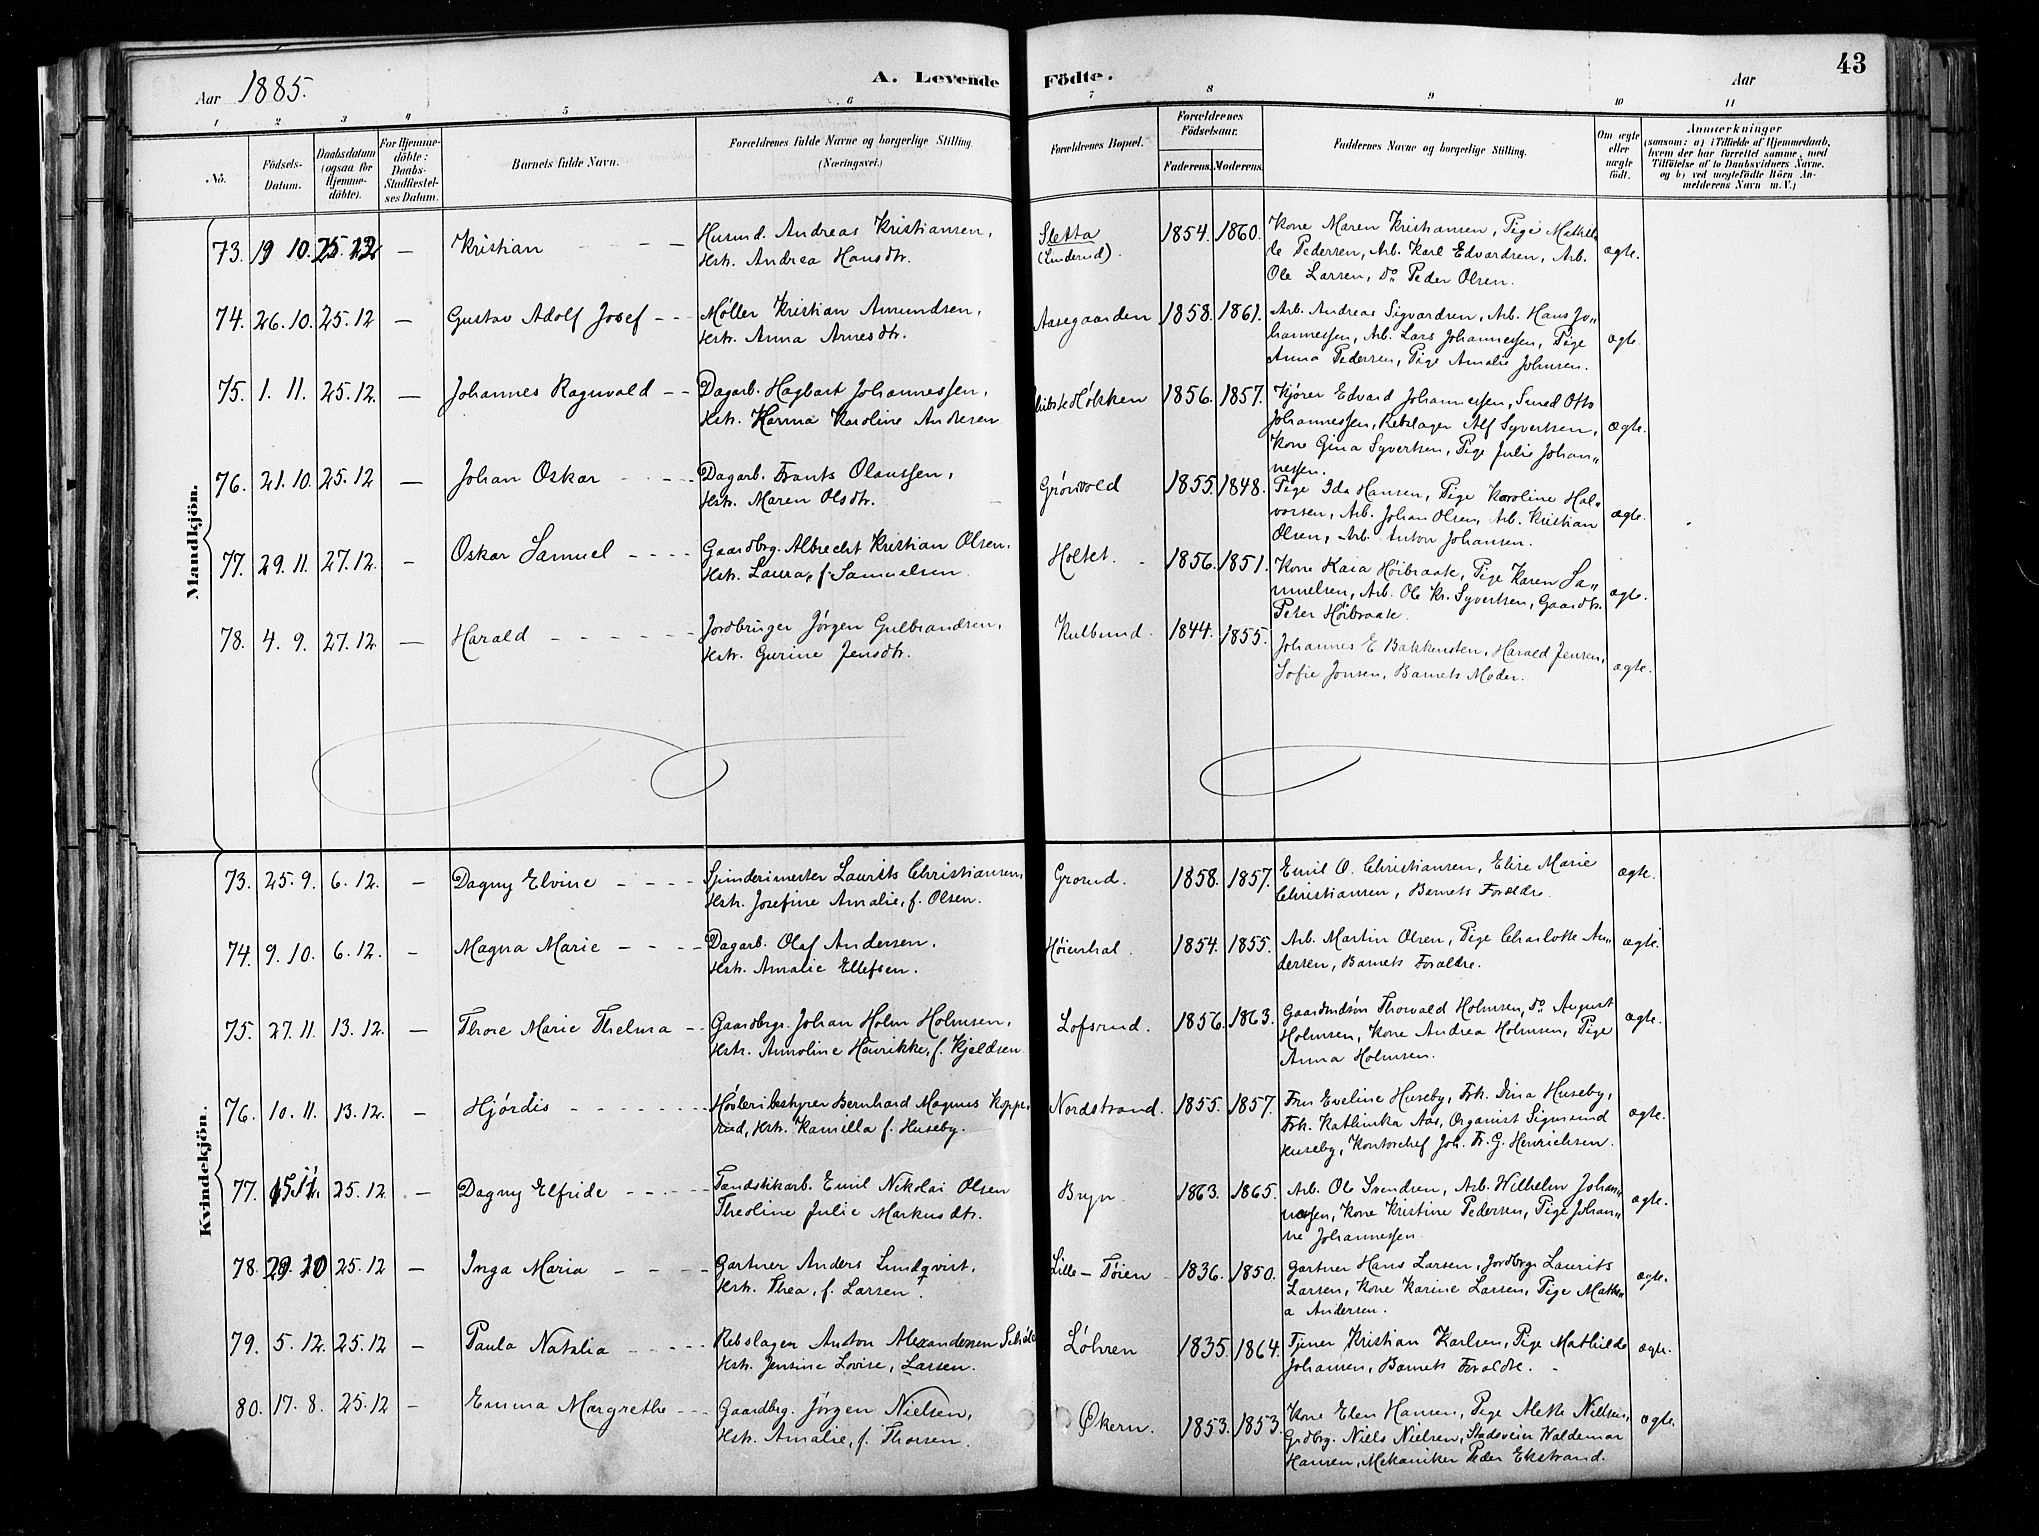 Aar 1885.
A. Levende Födte.
Aar
43
1 2 3 4 5 6 7 8 9 10 11
No.
Födsels-Datum.
Daabsdatum (ogsaa for Hjemme-döbte).
For Hjemme-döbte: Daabs-Stadfæstel-ses Datum.
Barnets fulde Navn.
Forældrenes fulde Navne og borgerlige Stilling (Næringsvei.)
Forældrenes Bopæl.
Forældrenes Födselsaar.
Faderens. Moderens.
Faddernes Navne og borgerlige Stilling.
Om ægte eller uægte födt.
Anmærkninger
(saasom: a) i Tilfælde af Hjemmedaab,
hvem der har forrettet samme, med
Tilföielse af to Daabsvidners Navne.
og b) ved uægtefödte Börn An-
melderens Navn m. V.)
Mandkjön.
73. 19 10. 25. 12 — Kristian — — Husmd. Andreas Kristiansen, Sletta 1854. 1860. Kone Maren Kristiansen, Pige Mathil-
Hstr. Andrea Hansdtr. (Linderud). de Pedersen, Arb. Karl Edvardsen, Arb. ægte.
Ole Larsen, do Peder Olsen.
74. 26. 10. 25. 12 — Gustav Adolf Josef - - Møller Kristian Amundsen, Aasegaarden 1858. 1861. Arb. Andreas Sigvardsen, Arb. Hans Jo-
Hstr. Anna Arnesdtr. hannessen, Arb. Lars Johannessen, Pige ægte.
Anna Pedersen, Pige Amalie Johnsen.
75. 1. 11. 25. 12. — Johannes Ragnvald - - Dagarb. Hagbart Johannessen, Høkken 1856. 1857. Kjører Edvard Johannessen, Smed Otto
Hstr. Hanna Karoline Andersen Johannessen, Rebslager Alf Syvertsen, ægte.
Kone Gina Syvertsen, Pige Julie Johan-
nessen.
76. 21. 10. 25. 12 — Johan Oskar - - - Dagarb. Frants Olaussen, Grønvold 1855. 1848. Pige Ida Hansen, Pige Karoline Hal-
Hstr. Maren Olsdtr. vorsen, Arb. Johan Olsen, Arb. Kristian ægte.
Olsen, Arb. Anton Johansen.
77. 29. 11. 27. 12. — Oskar Samuel - - - - Gaardbrg. Albrecht Kristian Olsen, Holtet. 1856. 1851. Kone Kaia Høibraate, Pige Karen Sa-
Hstr. Laura, f. Samuelsen muelsen, Arb. Ole Kr. Syvertsen, Gaardbr. ægte.
Peter Høibraate.
78. 4. 9. 27. 12. — Harald - - - - - - Jordbruger Jørgen Gulbrandsen, Kulbund. 1844. 1855. Johannes E. Bakkensten, Harald Jensen,
Hstr. Gurine Jensdtr. Sofie Jonsen, Barnets Moder. ægte.
Kvindekjön.
73. 25. 9. 6. 12. — Dagny Elvine - - - - Spinderimester Laurits Christiansen, Grorud. 1858. 1857. Emil O. Christiansen, Elise Marie ægte.
Hstr. Josefine Amalie, f. Olsen. Christiansen, Barnets Forældre.
74. 9. 10. 6. 12. — Magna Marie - - - - Dagarb. Olaf Andersen, Høienhal. 1854. 1855. Arb. Martin Olsen, Pige Charlotte An- ægte.
Hstr. Amalie Ellefsen. dersen, Barnets Forældre.
75. 27. 11. 13. 12. — Thore Marie Thelma - - Gaardbrgr. Johan Holm Holmsen, Lofsrud. 1856. 1863. Gaardmdsøn Thorvald Holmsen, do August
Hstr. Annoline Henrikke, f. Kjeldsen Holmsen, Kone Andrea Holmsen, Pige ægte.
Anna Holmsen.
76. 10. 11. 13. 12. — Hjørdis - - - - - - Høvleribestyrer Bernhard Magnus Koppe- Nordstrand. 1855. 1857. Fru Eveline Huseby, Frk. Dina Huseby,
rud, Hstr. Kamilla f. Huseby. Frk. Kathinka Aas, Organist Sigmund ægte.
Huseby, Kontorchef Joh. Fr. G. Henrichsen.
77. 15. 11. 25. 12. — Dagny Elfride - - - - Tændstikarb. Emil Nikolai Olsen Bryn. 1863. 1865. Arb. Ole Svendsen, Arb. Wilhelm Johan-
Theoline Julie Markusdtr. nessen, Kone Kristine Pedersen, Pige Johan- ægte.
ne Johannessen.
78. 29. 10 25. 12 — Inga Maria - - - - Gartner Anders Lindqvist, Lille-Tøien 1836. 1850. Gartner Hans Larsen, Jordbrg. Laurits
Hstr. Thea, f. Larsen. Larsen, Kone Karine Larsen, Pige Mathe- ægte.
a Andersen.
79. 5. 12. 25. 12 — Paula Natalia - - - - Rebslager Anton Alexandersen Løhren 1835. 1864. Tjener Kristian Karlsen, Pige Mathilde ægte.
Hstr. Jensine Lovise, Larsen. Johansen, Barnets Forældre.
80. 17. 8. 25. 12 — Emma Margrethe - - Gaardbrg. Jørgen Nielsen, Økern. 1853. 1853. Kone Elen Hansen, Pige Alette Nielsen, ægte.
Hstr. Amalie, f. Thorsen. Grdbrg. Niels Nielsen, Stadsveier Waldemar
Hansen, Mekaniker Peder Ekstrand.